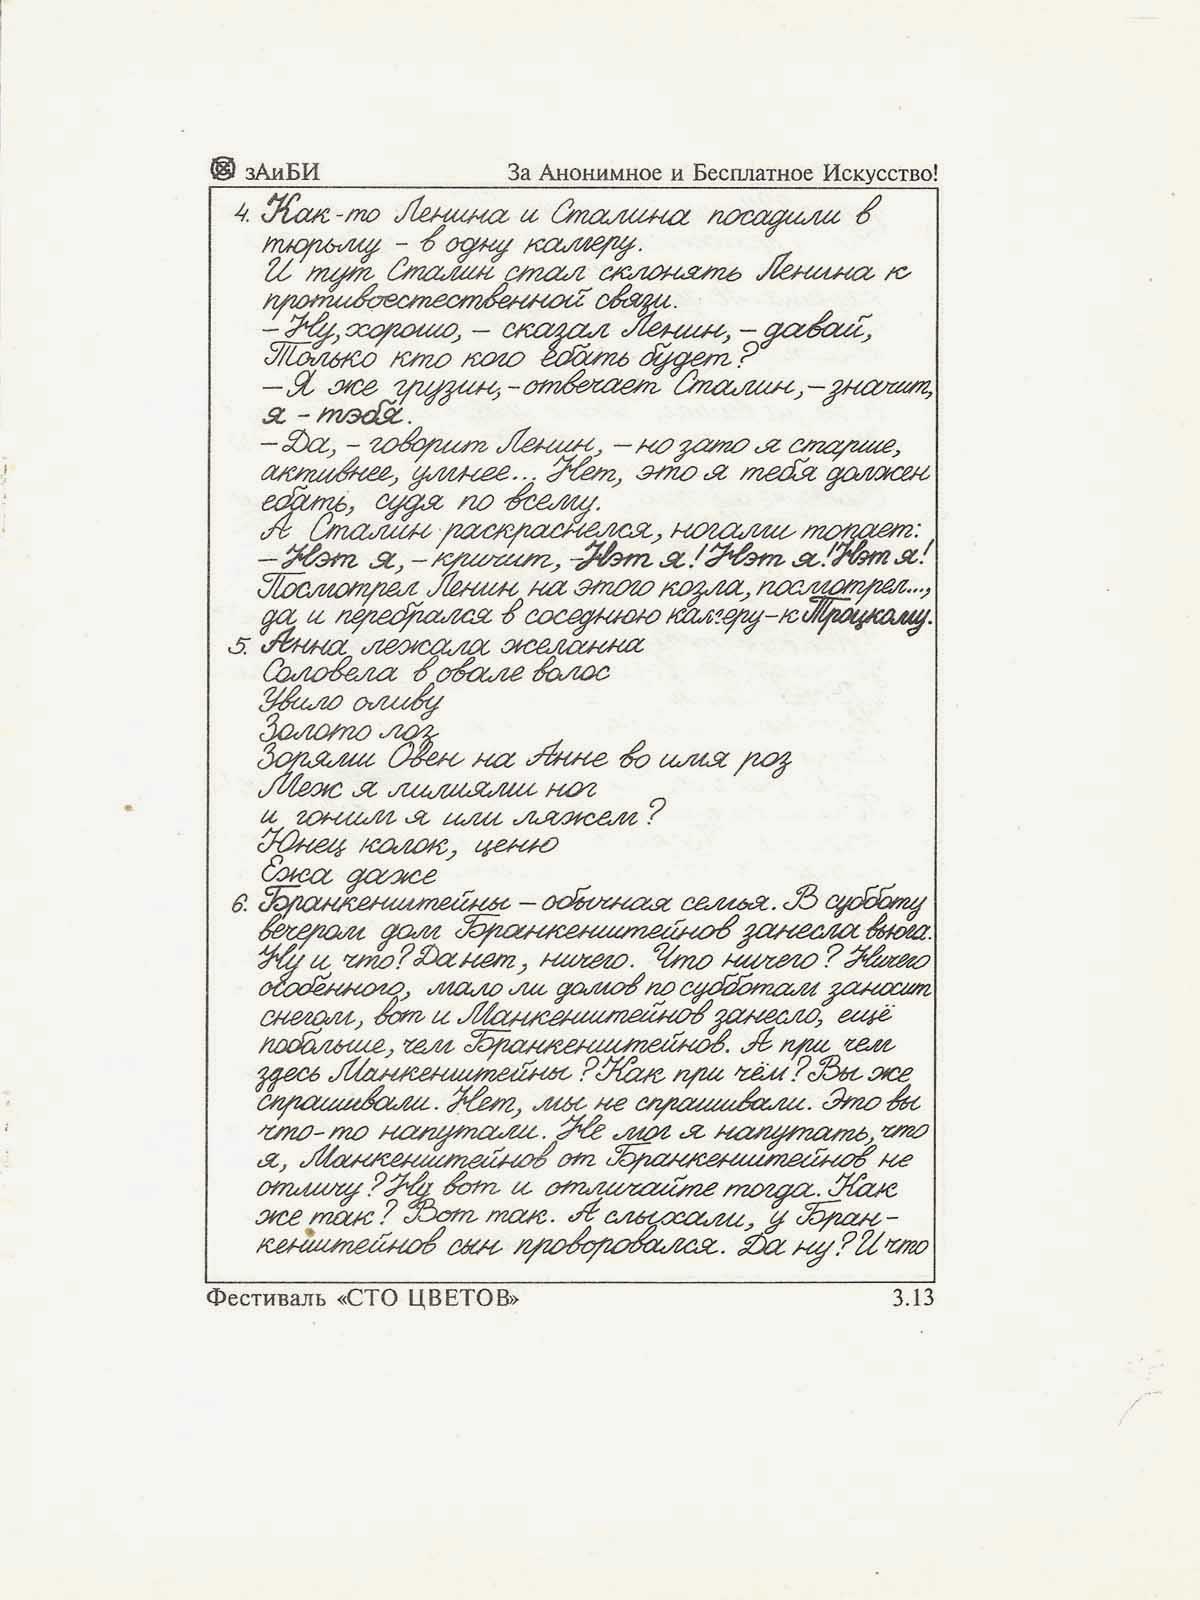 зАиБИ За Анонимное и Бесплатное Искусство!
4. Как-то Ленина и Сталина посадили в
тюрьму – в одну камеру.
И тут Сталин стал склонять Ленина к
противоестественной связи.
– Ну, хорошо, – сказал Ленин, – давай,
Только кто кого ебать будет?
– Я же грузин, – отвечает Сталин, – значит,
я – тэбя.
– Да, – говорит Ленин, – но зато я старше,
активнее, умнее... Нет, это я тебя должен
ебать, судя по всему.
А Сталин раскраснелся, ногами топает:
– Нэт я, – кричит, – Нэт я! Нэт я! Нэт я!
Посмотрел Ленин на этого козла, посмотрел...,
да и перебрался в соседнюю камеру – к Троцкому.
5. Анна лежала желанна
Соловела в овале волос
Увило оливу
Золото лоз
Зорями Овен на Анне во имя роз
Меж я лилиями ног
и гоним я или ляжем?
Юнец колок, ценю
Ежа даже
6. Бранкенштейны – обычная семья. В субботу
вечером дом Бранкенштейнов занесла вьюга.
Ну и что? Да нет, ничего. Что ничего? Ничего
особенного, мало ли домов по субботам заносит
снегом, вот и Манкенштейнов занесло, ещё
побольше, чем Бранкенштейнов. А при чем
здесь Манкенштейны? Как при чём? Вы же
спрашивали. Нет, мы не спрашивали. Это вы
что-то напутали. Не мог я напутать, что
я, Манкенштейнов от Бранкенштейнов не
отличу? Ну вот и отличайте тогда. Как
же так? Вот так. А слыхали, у Бран-
кенштейнов сын проворовался. Да ну? И что
Фестиваль «СТО ЦВЕТОВ» 3.13